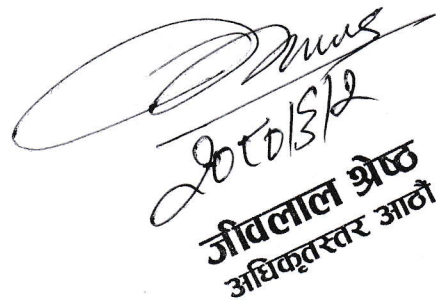 २०८०।६।२
जीवलाल श्रेष्ठ
अधिकृतस्तर आठौं